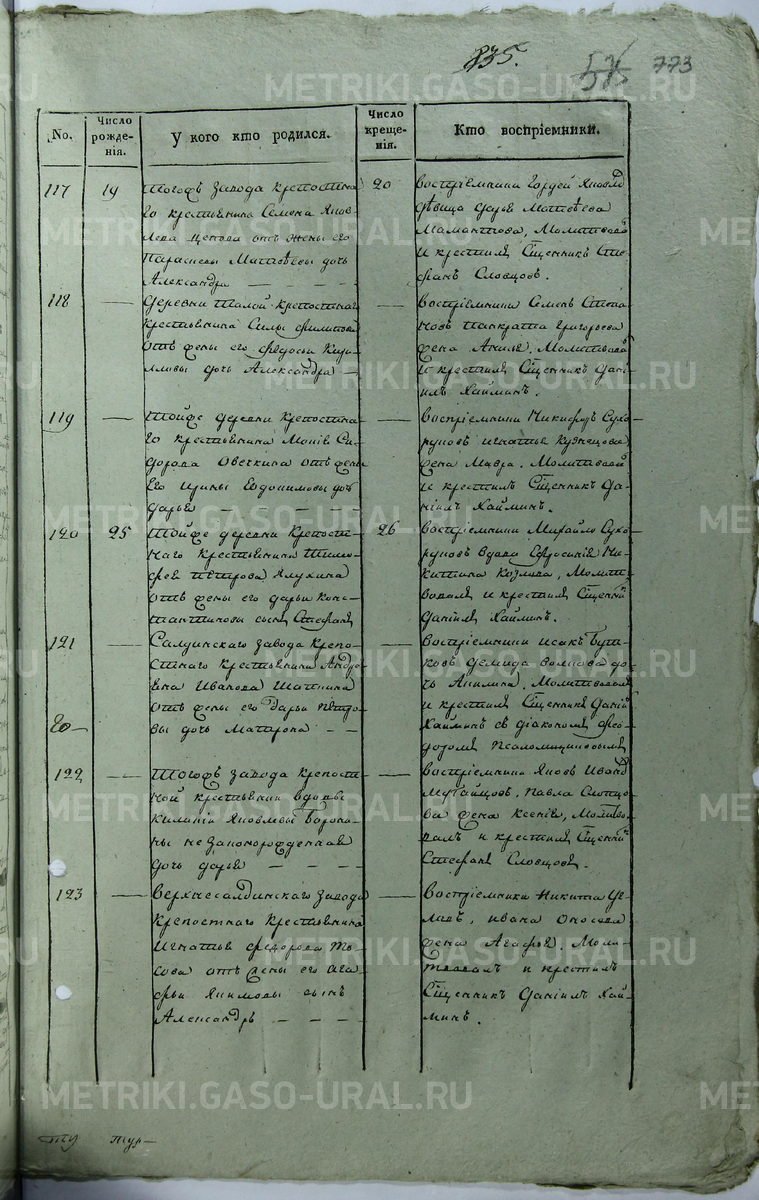 835.
573
773
No.
Число рожде-нія.
У кого кто родился.
Число креще-нія.
Кто воспріемники.
117
19
Тогожъ завода крепостна
го крестьянина Семена Яков
лева Цепова отъ жены его
Парасковьи Матвѣевы дочь
Александра
20
Воспріемники Гордей Яковлѣ
дѣвица Дарья Матвѣева
Мамантова, Молитвовалъ
и крестилъ Сщенникъ Сте
фанъ Словцовъ.
118
Деревни Малой крепостнаго
крестьянина Силы Филипова
отъ жены его Федосьи Кири
ловы дочь Александра
Воспріемники Семенъ Степа
новъ Панкрата Григорьева
жена Анисья. Молитвовалъ
и крестилъ Сщенникъ Дані
илъ Хайминъ.
119
Тойже деревни крепостна
го крестьянина Си
дорова Овечкина отъ жены
его Ирины Евдокимовы дочь
Дарья
Воспріемники Никифоръ Сухо
руковъ Игнатья Кузнецова
жена Мавра. Молитвовалъ
и крестилъ Сщенникъ Да
ніилъ Хайминъ.
120
25
Тойже деревни крепост
наго крестьянина Тимо
фея Петрова Ялухина
отъ жены его Дарьи Конс
тантиновы сынъ Стефанъ
26
Воспріемники Михайло Сухо
руковъ вдова Ефросинія Ни
китина Козлова, Молит
вовалъ и крестилъ Сщенникъ
Даніилъ Хайминъ.
121
Салдинскаго завода крепо
стнаго крестьянина
Иванова
отъ жены его Дарьи Петро
вы дочь Матрона
Воспріемники Исакъ Бут
ковъ Демида Волкова до
чь Акилина. Молитвовалъ
и крестилъ Сщенникъ Даніи
Хайминъ съ діакономъ Фео
доромъ Псаломщиковымъ
122
Тогожъ завода крепост
ной крестьянки вдовы
Киликіи Яковлевы
ны незаконорожденная
дочь Дарья
Воспріемники Яковъ Ивановъ
Мугайцовъ, Павла Слепцо
ва жена Ксенія, Молитво
валъ и крестилъ Сщенникъ
Стефанъ Словцовъ.
123
Верхнесалдинскаго завода
крепостнаго крестьянина
Игнатья Федорова
сова отъ жены его Ага
фьи Якимовы сынъ
Александръ
Воспріемники Никита
Ивана Оносова
жена Агафья. Моли
твовалъ и крестилъ
Сщенникъ Даніилъ Хай
минъ.
METRIKI.GASO-URAL.RU